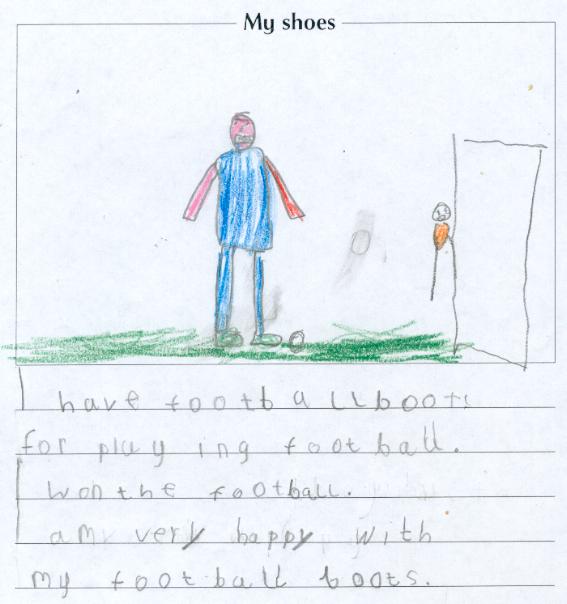 My shoes
I have football boots
for playing football.
I won the football.
I am very happy with
my football boots.